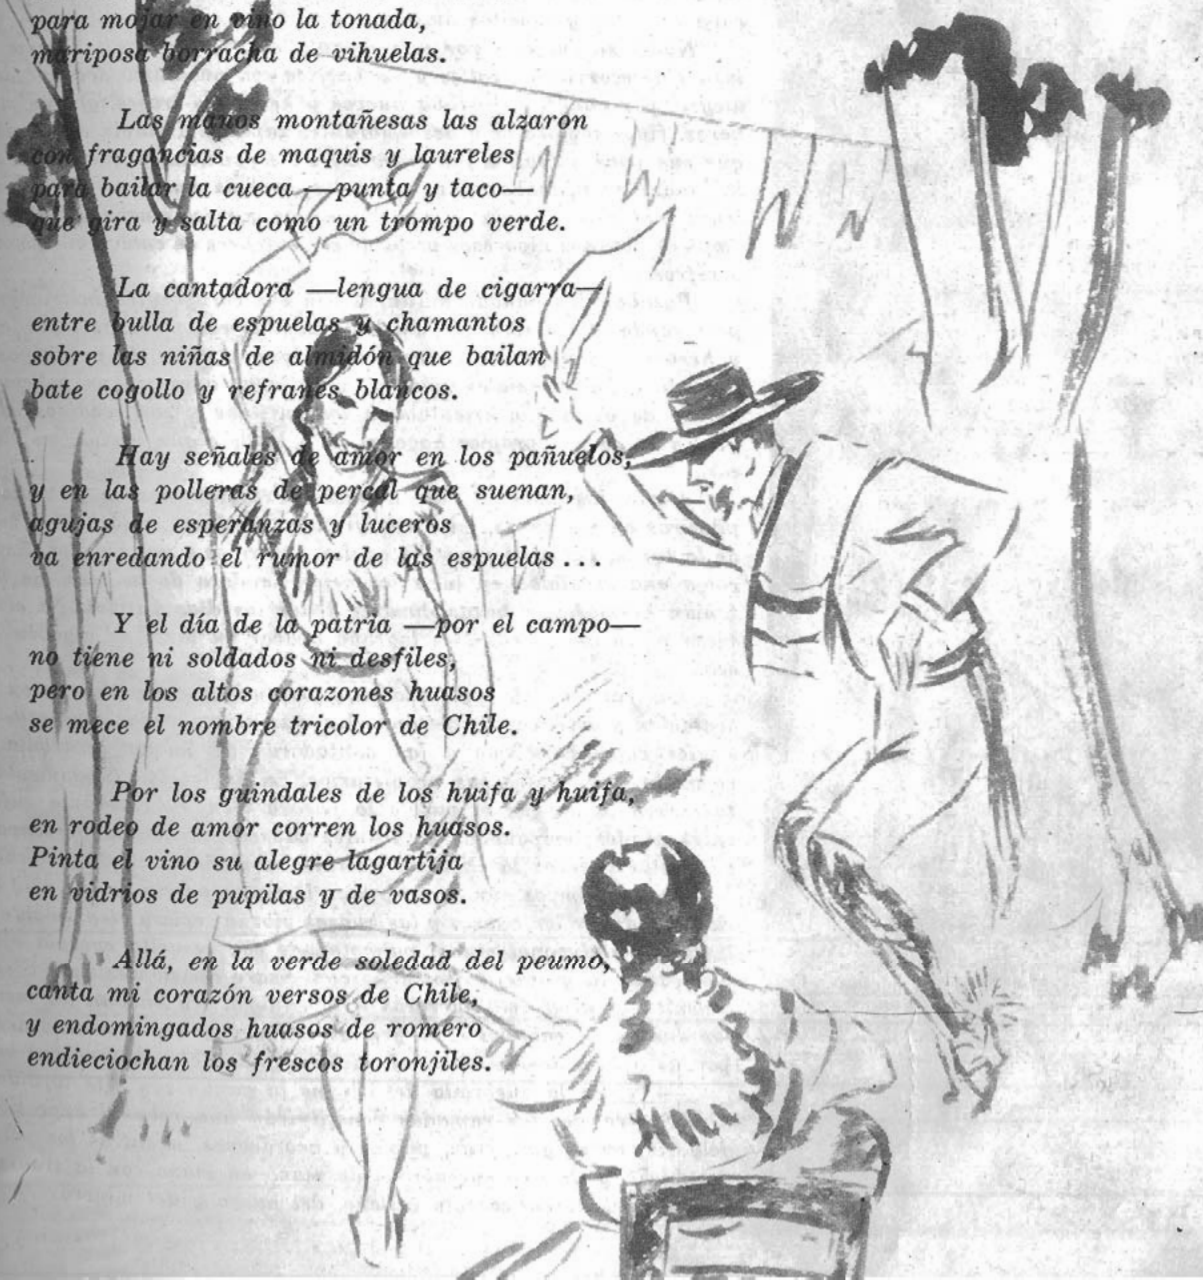 para mojar en vino la tonada,
mariposa borracha de vihuelas.
Las manos montañesas las alzaron
con fragancias de maquis y laureles
para bailar la cueca —punta y taco—
que gira y salta como un trompo verde.
La cantadora —lengua de cigarra—
entre bulla de espuelas y chamantos
sobre las niñas de almidón que bailan
bate cogollo y refranes blancos.
Hay señales de amor en los pañuelos,
y en las polleras de percal que suenan,
agujas de esperanzas y luceros
va enredando el rumor de las espuelas...
Y el día de la patria —por el campo—
no tiene ni soldados ni desfiles,
pero en los altos corazones huasos
se mece el nombre tricolor de Chile.
Por los guindales de los huifa y huifa,
en rodeo de amor corren los huasos.
Pinta el vino su alegre lagartija
en vidrios de pupilas y de vasos.
Allá, en la verde soledad del peumo,
canta mi corazón versos de Chile,
y endomingados huasos de romero
endieciochan los frescos toronjiles.